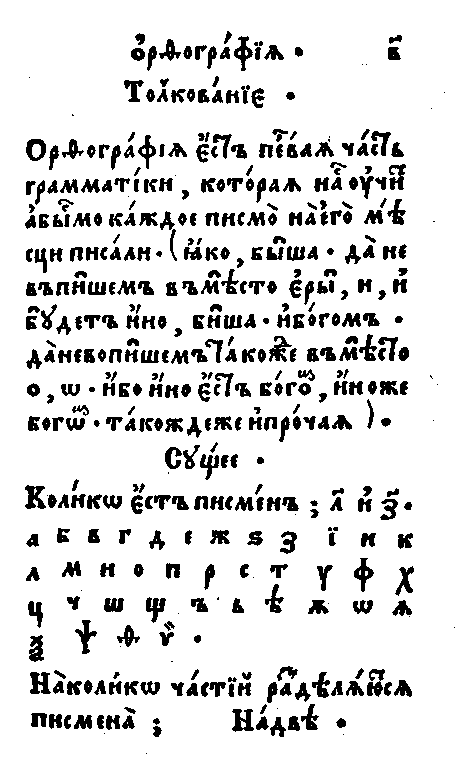 Ѻ҆рѳогра́фїѧ · в҃
Толкова́нїє ·
Орѳогра́фіѧ є҆́сⷮь пеⷬ҇ваѧ ча́сⷮь
грамматі́ки , кото́раѧ наⷭ҇ ѹ҆чиⷮ
абыⷭ҇мо ка́ждое писмо̀ на̀ єго̀ мѣ́
сци писа́ли · ( ꙗ҆́ко , бы́ша · да̀ не
въпи́шемъ въмѣ́сто єры̀ , и , и҆
бу́детъ и҆́но , би́ша · и҆бо́гомъ ·
да̀невопи́шемъ та́коⷤе въмѣ́сто
о , ѡ · и҆́бо и҆́но є҆́сⷮь бо́гоⷨ , и҆́ноже
богѡⷨ · та́кождеже и҆про́чаѧ ) ·
Су́щее ·
Коли́кѡ є҆́стъ писме́нъ ; л҃ и҆ з҃ ·
а б в г д е ж ѕ з ї и к
л м н о п р с т у ф х
ц ч ш щ ъ ь ѣ ѫ ѡ ѧ
ѯ ѱ ѳ ѵ҆ ·
На̀коли́кѡ ча́стїй раⷥдѣлѧ́юⷮсѧ
писмена̀ ; На́двѣ ·